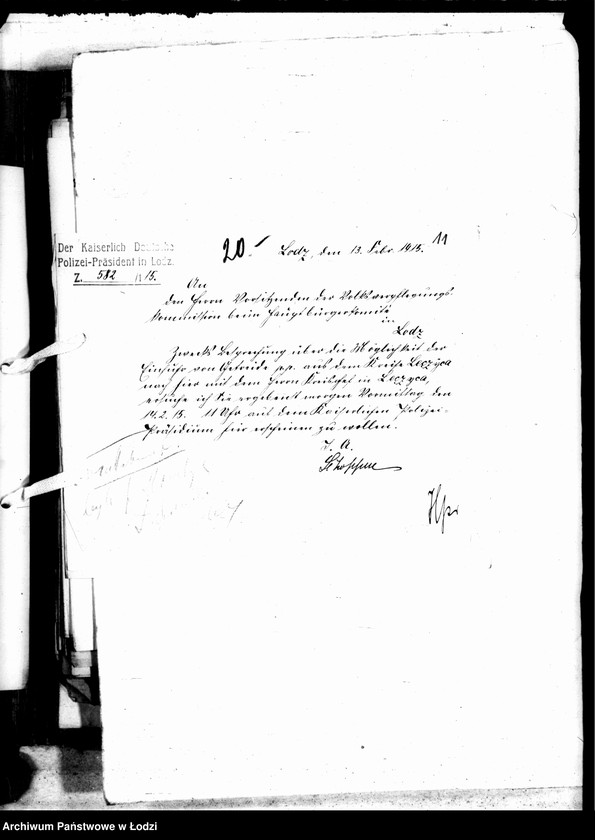 Der Kaiserlich Deutsche
Polizei-Präsident in Lodz.
Z. 582 /15.
20.
Lodz, den 13. Febr. 1915.
11
An
den Herrn Vorsitzenden der Volksverpflegungs-
kommission beim Hauptbürgerkomité
Lodz
Zwecks Besprechung über die Möglichkeit der
Einfuhr von Getreide pp. aus dem Kreise Leczyca
nach hier mit dem Herrn Kreischef in Leczyca,
ersuche ich Sie ergebenst morgen Vormittag den
14.2.15. 11 Uhr auf dem Kaiserlichen Polizei-
Präsidium hier erscheinen zu wollen.
J. A.
Schoppen
Archiwum Państwowe w Łodzi